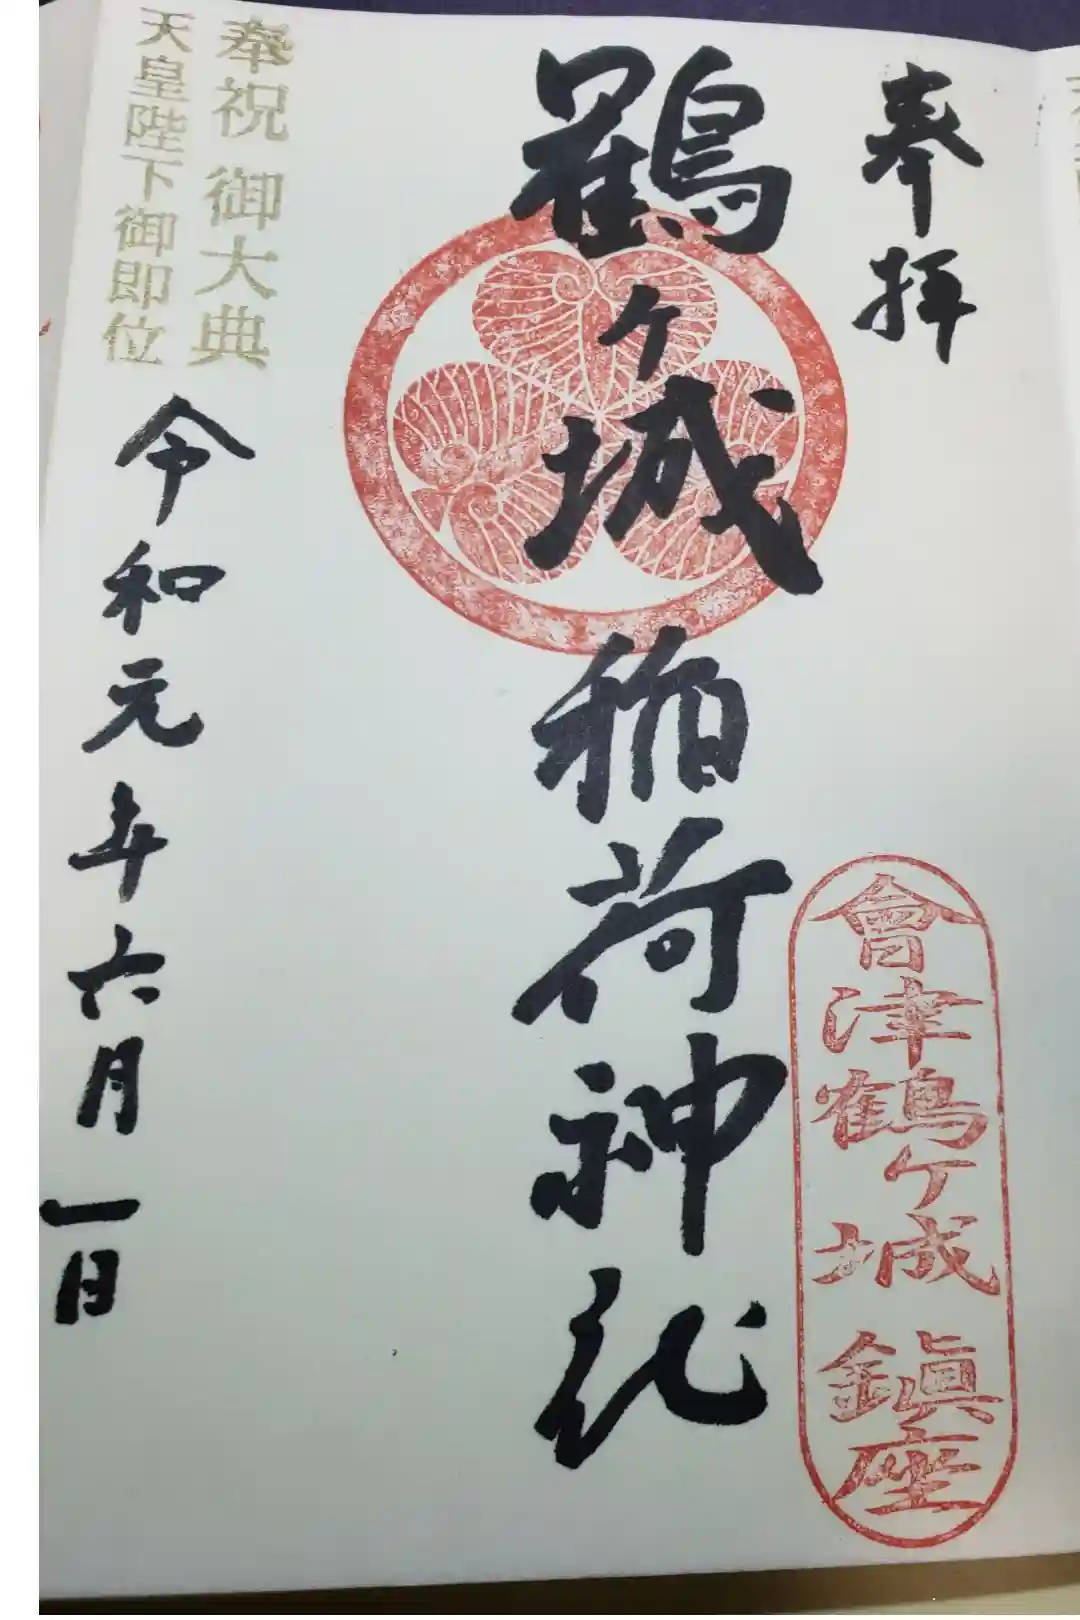 奉拝
會津鶴ヶ城鎮座
鶴ヶ城稲荷神社
奉祝 御大典
天皇陛下御即位
令和元年六月一日